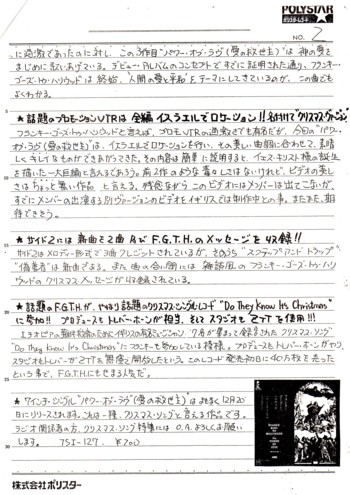 POLYSTAR
NO. 2
に過激であったのに対し、この3作目"パワー・オブ・ラヴ(愛の救世主)"は神の愛を
まじめに歌いあげている。デビュー・アルバムのコンセプトですでに証明された通り、フランキー・
ゴーズ・トゥ・ハリウッドは終始、"人間の愛と平和"をテーマにしてきているのが、この曲でも
よくわかる。
★話題のプロモーションVTRは全編イスラエルでロケーション!!名付けて"クリスマス・ヴァージョン"
フランキー・ゴーズ・トゥ・ハリウッドと言えば、プロモVTRの過激さでも有名だが、今回の"パワー・
オブ・ラヴ(愛の救世主)"は、イスラエルでロケーションを行い、その美しい曲調に合わせて、素晴
しくキレイなものができあがってきた。その内容は簡単に説明すると、イエス・キリスト様の誕生
を描いた一大巨編と言えるであろう。前2作のような毒々しさはないけれど、ビデオの美し
さはちょっと驚い作品と言える。残念ながらこのビデオにはメンバーは出てこないが、
すでにメンバーの出演する別ヴァージョンのビデオをイギリスでは制作中との事。またまた、期
待できそう。
★サイド2には新曲で2曲及びF.G.T.H.のメッセージを収録!!
サイド2はメロディー形式で3曲クレジットされているが、そのうち"スクラップ・アンド・トラップ"
"偽善者"は新曲である。また曲の合い間には神話風のフランキー・ゴーズ・トゥ・ハリ
ウッドのクリスマス・メッセージが収録されている。
★話題のF.G.T.H.が、やはり話題のクリスマス・シングル・レコード"Do They Know It's Christmas"
に参加!! プロデュースもトレバー・ホーンが担当、そしてスタジオもZTTを使用!!!
"Do They Know It's Christmas"にフランキーも参加している模様。プロデュースもトレバー・ホーンが行ない、
スタジオもトレバーがZTTを無償で開放したという。このレコード発売初日に40万枚を売った
という事で、F.G.T.H.にもせまる人気だ。
★7インチ・シングル"パワー・オブ・ラヴ(愛の救世主)"は、とにかく12月20
日にリリースされます。これは一種、クリスマス・ソングと言える作品です。
ラジオ関係者の方、クリスマス・ソング特集にはO.A.よろしくお願い
します。 7SI-127. ¥700
株式会社ポリスター